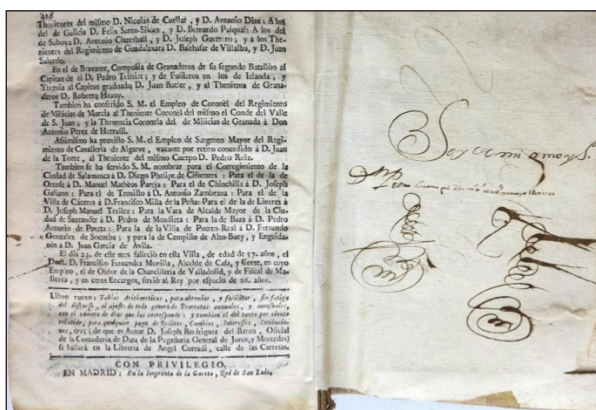 Thenientes del mismo D. Nicolas de Cuellar, y D. Antonio Diaz: A los
del de Galicia D. Felix Santo-Sildes, y D. Bernardo Pasqual: A los del
de Saboya D. Antonio Clareball, y D. Joseph Guerrero; y a los The-
nientes del Regimiento de Guadalaxara D. Balthasar de Villalba, y D. Juan
Salcedo.
En el de Bravante, Compañia de Granaderos de su segundo Batallòn al
Capitan de èl D. Pedro
y de Fusileros en los de Irlanda, y
Capitan graduado D. Juan Butler, y al Theniente de Grana-
deros D. Roberto Heany.
Tambien ha conferido S. M. el Empleo de Coronel del Regimiento
de Milicias de Murcia al Theniente Coronel del mismo el Conde del Valle
de S. Juan; y la Thenencia Coronela del de Milicias de Granada à Don
Antonio Perez de Herrasti.
Assimismo ha provisto S. M. el Empleo de Sargento Mayor del Regi-
miento de Cavalleria de Algarve, vacante por retiro concedido à D. Juan
de la Torre, al Theniente del mismo Cuerpo D. Pedro Ruiz.
Tambien se ha servido S. M. nombrar para el Corregimiento de la
Ciudad de Salamanca à D. Phelipe de Cifuentes: Para el de la de
Orense à D. Manuel Matheos Pareja: Para el de Chinchilla à D. Joseph
Galiano: Para el de Truxillo à D. Antonio Zambrana: Para el de la
Villa de Cazeres à D. Francisco Milla de la Peña: Para el de la de Linares à
D. Joseph Manuel Trelles: Para la Vara de Alcalde Mayor de la Ciu-
dad de Santander à D. Pedro de Monsieta: Para la de Baza à D. Pedro
Antonio de : Para la de la Villa de Puerto-Real à D. Fernando
Gonzalez de Socueba; y para la de Campillo de Alto-Buey, y Enguida-
nos à D. Juan Garcia de Avila.
El dia 23. de este mes falleciò en esta Villa, de edad de 57. años, el
D. Francisco Fernandez Munilla, Alcalde de Casa, y Corte, en cuyo
Empleo, el de Oidor de la Chancilleria de Valladolid, y de Fiscal de Ma-
llorca, y en otros Encargos, sirviò al Rey por espacio de 26. años.
Libro nuevo: Tablas Arithmeticas, para abreviar, y facilitar, sin fatiga
del discurso, el ajuste de todo genero de Prorratas annuales, y mensuales,
con el numero de dias que les corresponde: y tambien el del tanto por ciento
, para qualquier pago de Reditos, Cambios, Intereses, Conducio-
nes, &c. de que es Autor D. Joseph Rodriguez del Barco, Oficial
de la Contaduria de Data de la Pagaduria General de Juros, y Mercedes;
se hallarà en la Libreria de Angel Corradi, calle de las Carretas.
CON PRIVILEGIO.
EN MADRID: En la Imprenta de la Gaceta, Red de San Luis.
Soy de mi amo y S.